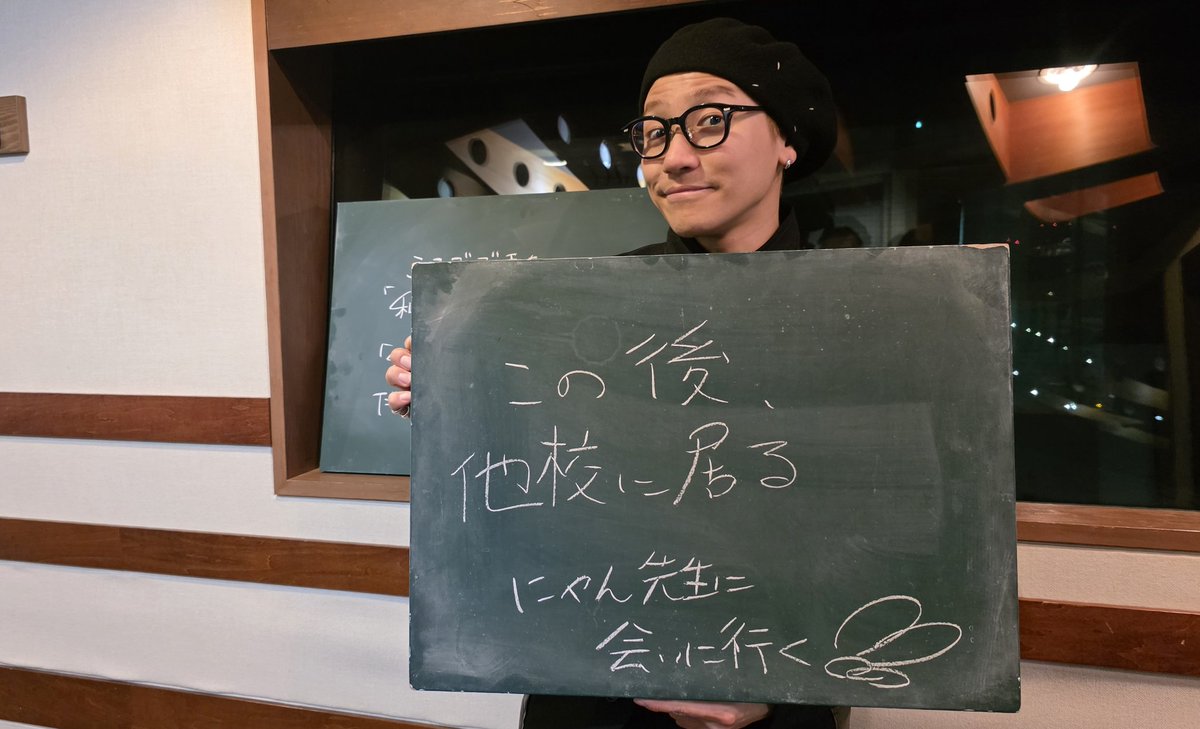 この後、
他校に居る
にゃん先生に
会いに行く